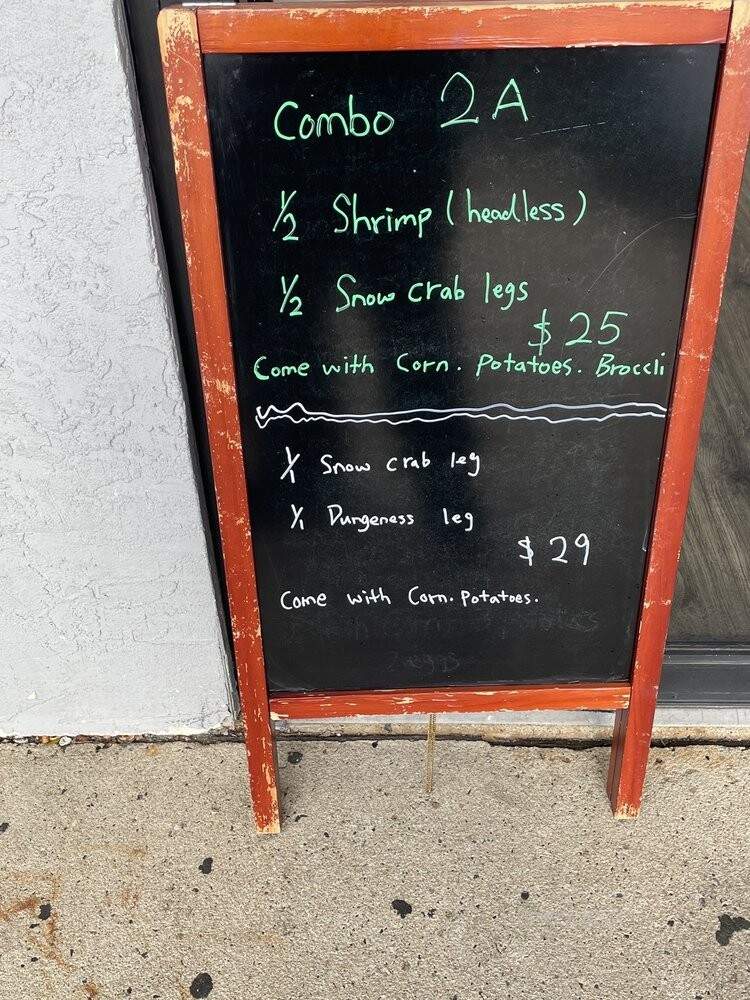 Combo 2A
1/2 Shrimp (headless)
1/2 Snow crab legs
$25
Come with Corn. Potatoes. Broccli
1/1 Snow crab leg
1/1 Dungeness leg
$29
Come with Corn. Potatoes.